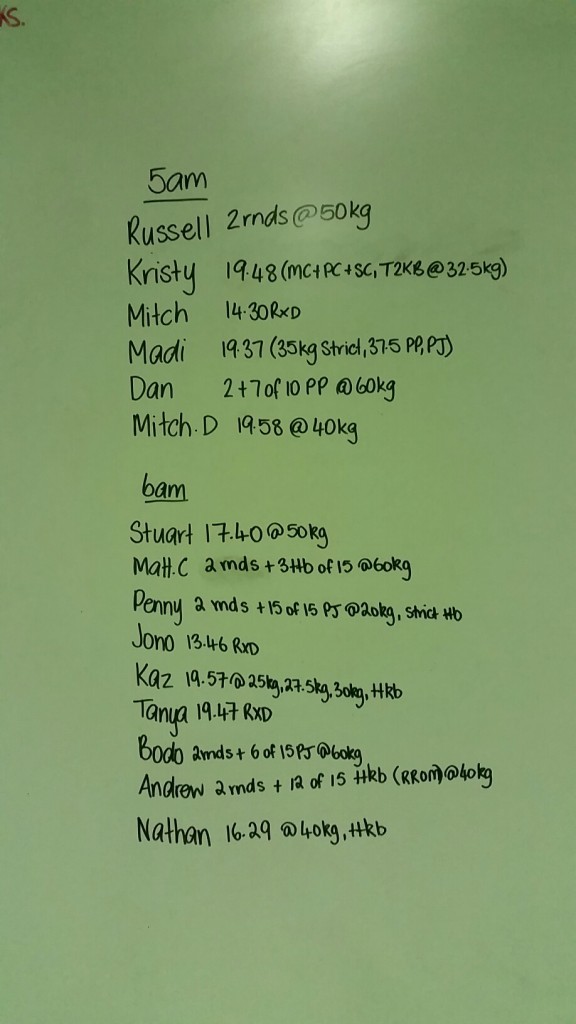 KS.
5am
Russell 2rnds @50kg
Kristy 19.48 (MC+PC+SC, T2KB @ 32.5kg)
Mitch 14.30 RxD
Madi 19.37 (35kg Strict, 37.5 PP, PJ)
Dan 2+7 of 10 PP @ 60kg
Mitch.D 19.58 @ 40kg
6am
Stuart 17.40 @ 50kg
Matt.C 2 rnds + 3 ttb of 15 @ 60kg
Penny 2 rnds + 15 of 15 PJ @ 20kg, strict ttb
Jono 13.46 RxD
Kaz 19.57 @ 25kg, 27.5kg, 30kg, ttkb
Tanya 19.47 RXD
Bodo 2rnds + 6 of 15 PJ @ 60kg
Andrew 2 rnds + 12 of 15 ttkb (RROM) @ 40kg
Nathan 16.29 @ 40kg, ttkb